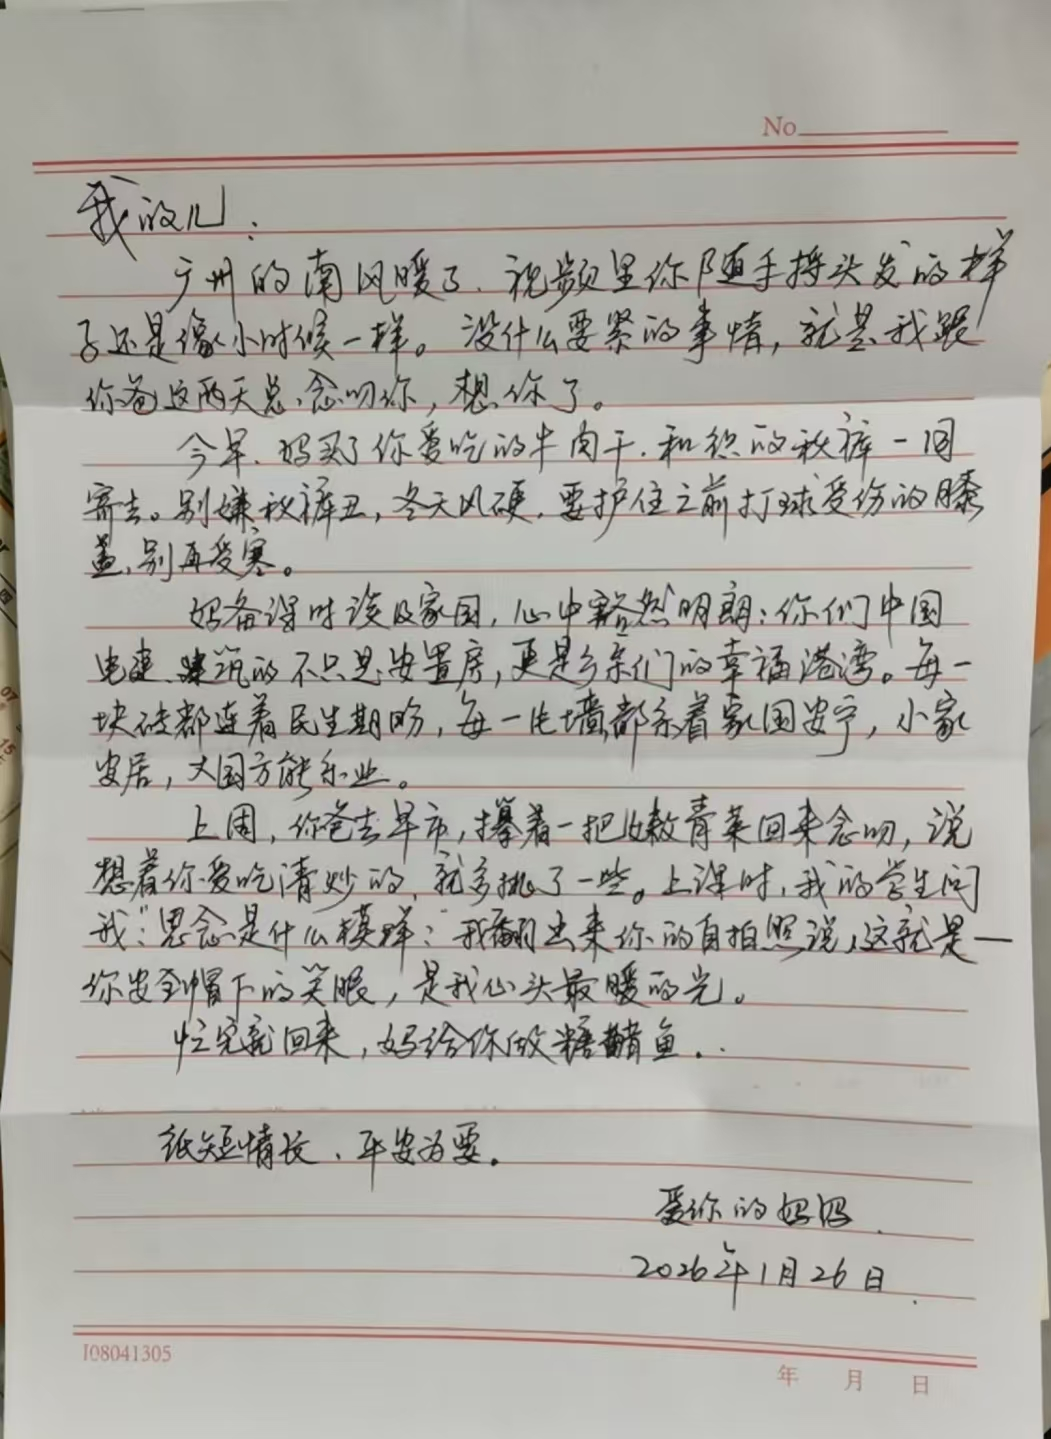 No
我的儿：
广州的南风暖了．视频里你随手捋头发的样
子还是像小时候一样。没什么要紧的事情，就是我跟
你爸这两天总念叨你，想你了。
今早．妈买了你爱吃的牛肉干．和织的秋裤一同
寄去。别嫌秋裤丑，冬天风硬．要护住之前打球受伤的膝
盖，别再受寒。
妈备课时谈及家国，心中豁然明朗：你们中国
电建 建筑的不只是安置房，更是乡亲们的幸福港湾。每一
块砖都连着民生期盼，每一片墙都系着家国安宁，小家
安居，大国方能乐业。
上周，你爸去早市，攥着一把嫩青菜回来念叨，说
想着你爱吃清炒的，就多挑了一些。上课时，我的学生问
我："思念是什么模样"我翻出来你的自拍照说，这就是—
你安全帽下的笑眼，是我心头最暖的光。
忙完就回来，妈给你做糖醋鱼．．
纸短情长．平安为要。
爱你的妈妈．
2026年1月26日．
I08041305
年 月 日